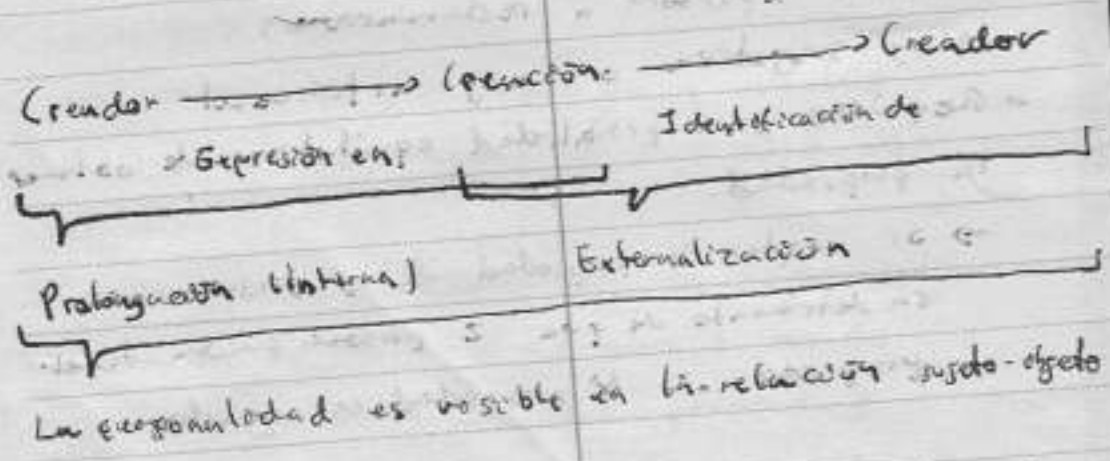 Creador → Creación → Creador
Expresión en: Identificación de
Prolongación (interna) Externalización
La es visible en la relación sujeto-objeto